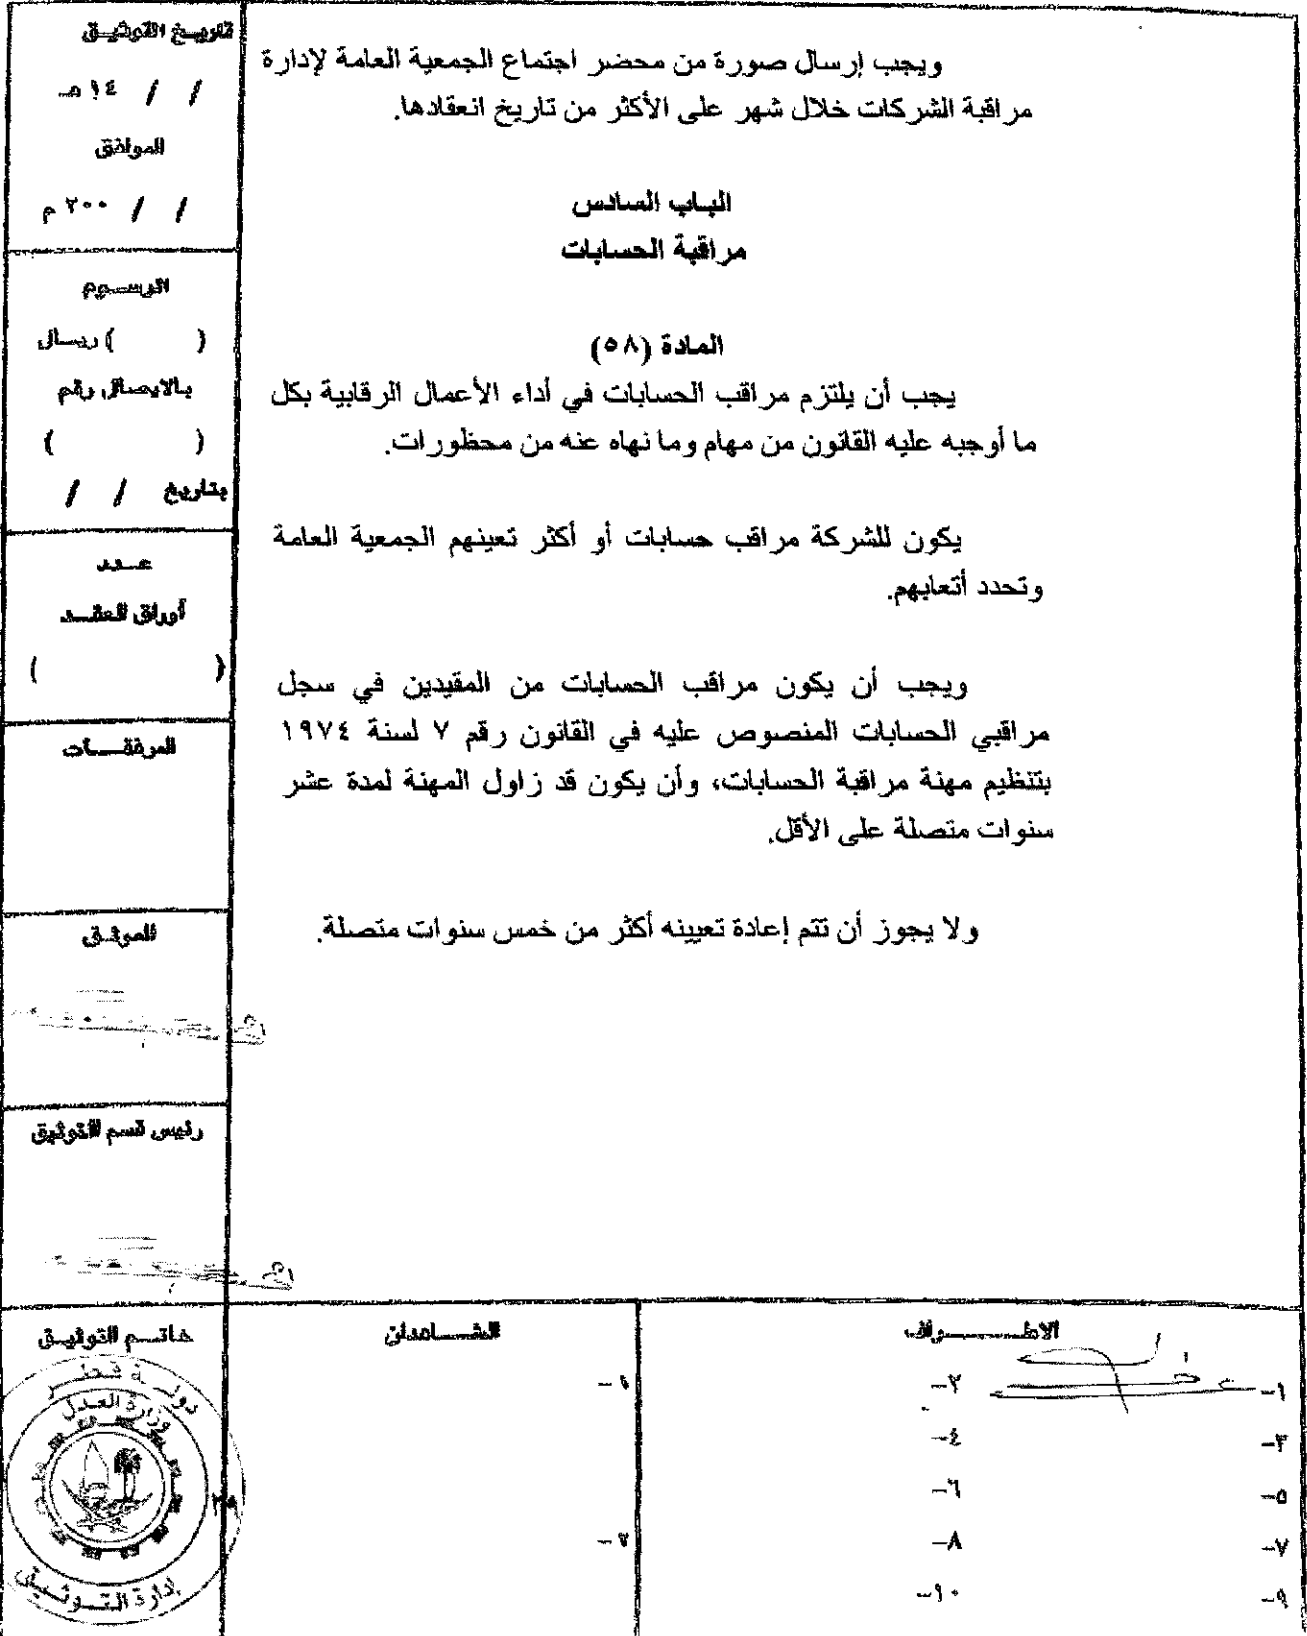 ويجب إرسال صورة من محضر اجتماع الجمعية العامة لإدارة
مراقبة الشركات خلال شهر على الأكثر من تاريخ انعقادها.
الباب السادس
مراقبة الحسابات
المادة (٥٨)
يجب أن يلتزم مراقب الحسابات في أداء الأعمال الرقابية بكل
ما أوجبه عليه القانون من مهام وما نهاه عنه من محظورات.
يكون للشركة مراقب حسابات أو أكثر تعينهم الجمعية العامة
وتحدد أتعابهم.
ويجب أن يكون مراقب الحسابات من المقيدين في سجل
مراقبي الحسابات المنصوص عليه في القانون رقم ٧ لسنة ١٩٧٤
بتنظيم مهنة مراقبة الحسابات، وأن يكون قد زاول المهنة لمدة عشر
سنوات متصلة على الأقل.
ولا يجوز أن تتم إعادة تعيينه أكثر من خمس سنوات متصلة.
تاريخ التوثيق
/ / ١٤ هـ
الموافق
/ / ٢٠٠ م
الرسوم
( ) ريال
بالايصال رقم
( )
بتاريخ / /
عدد
أوراق العقد
( )
المرفقات
الموثق
رئيس قسم التوثيق
الاطراف
١-
٢-
٣-
٤-
٥-
٦-
٧-
٨-
٩-
١٠-
الشاهدان
١-
٢-
خاتم التوثيق
دولة قطر
وزارة العدل
إدارة التوثيق